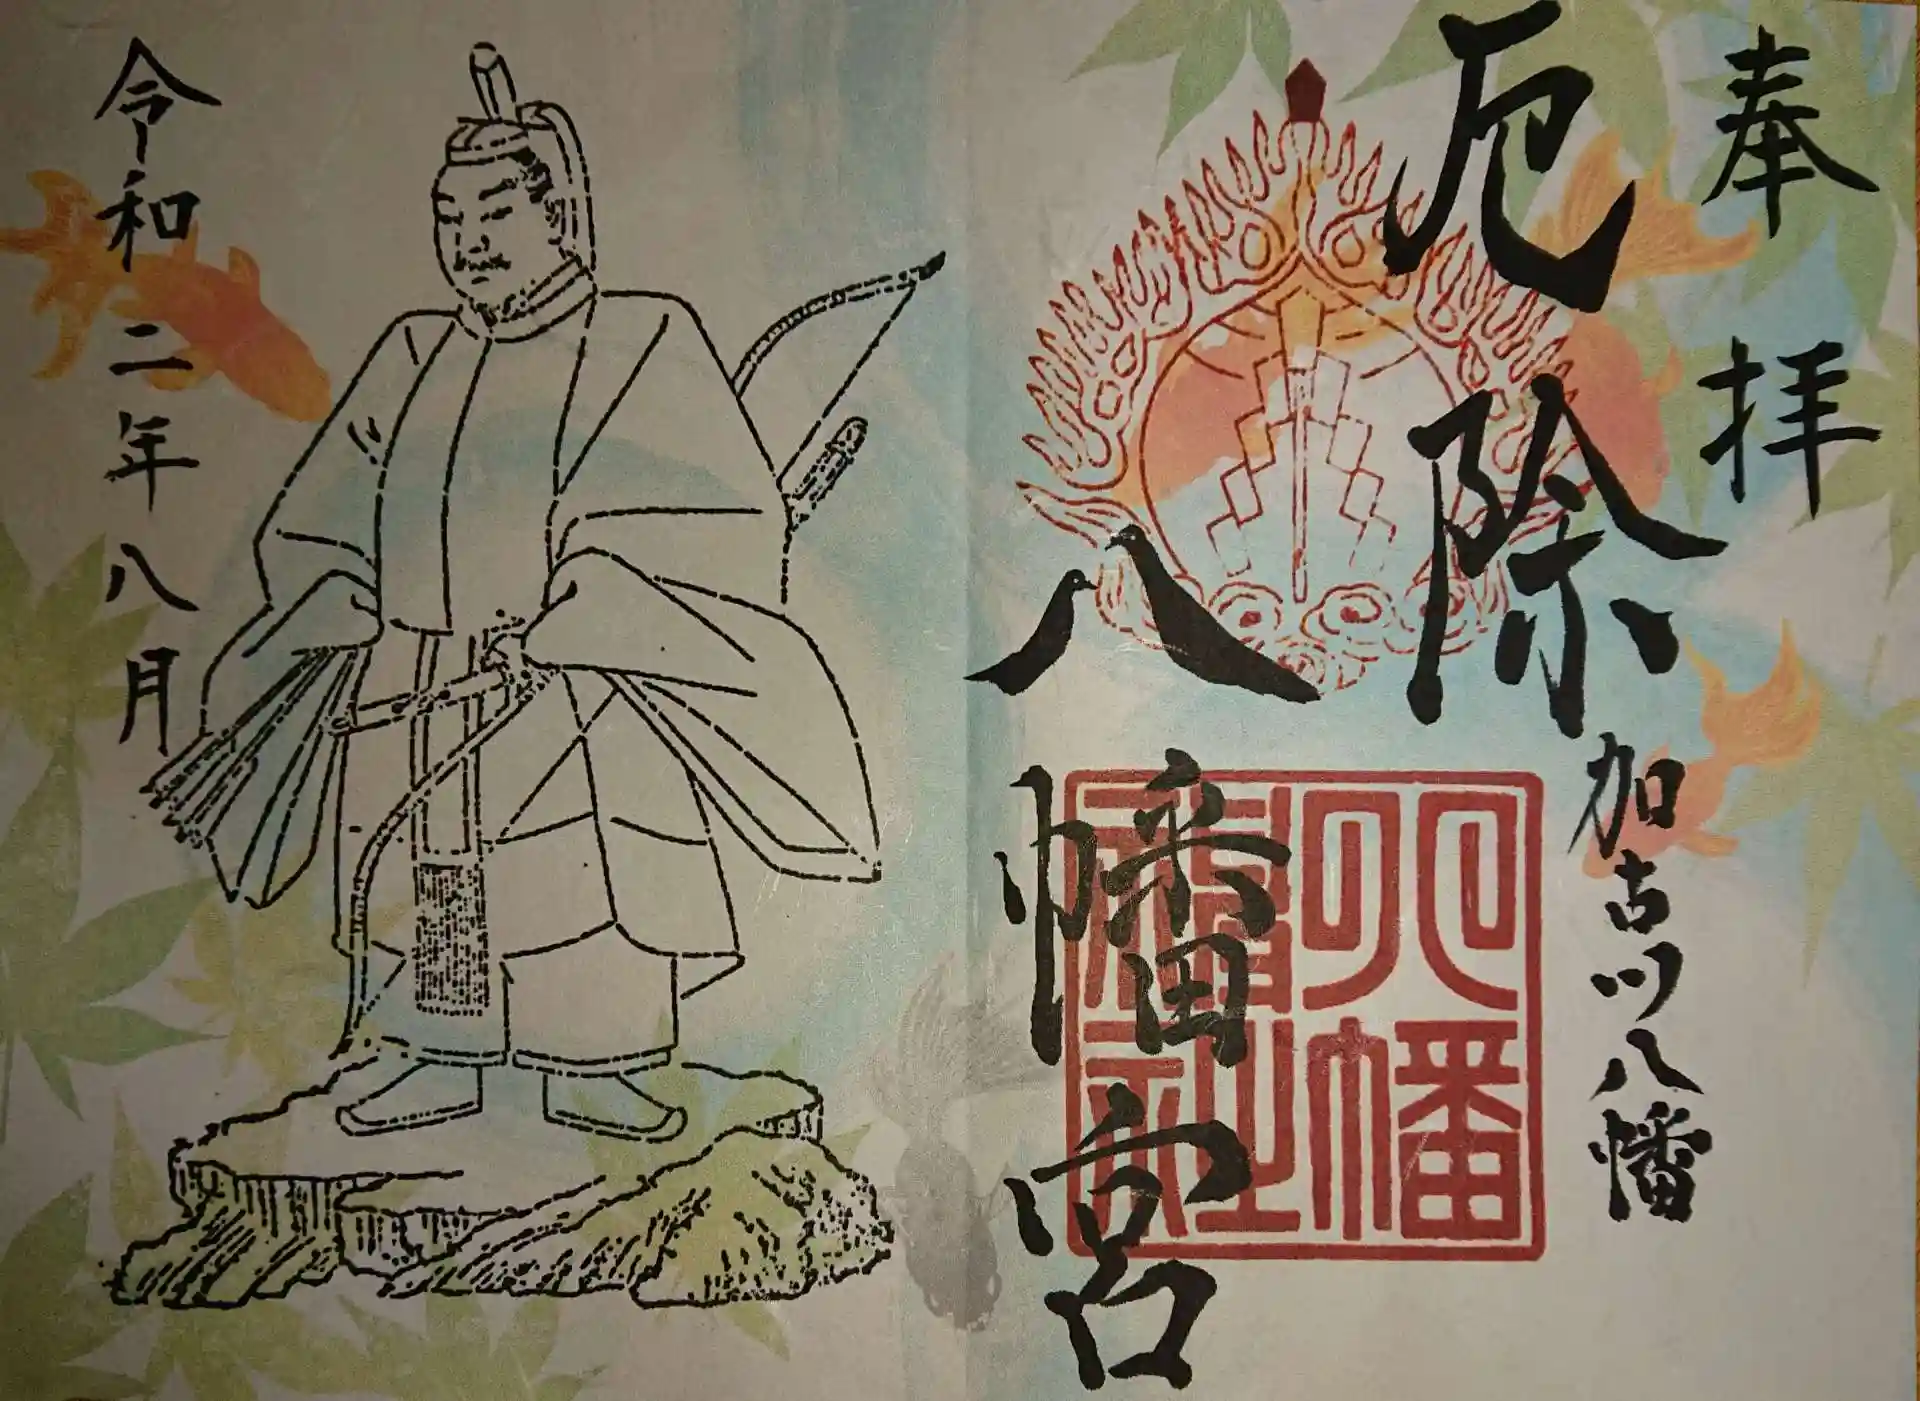 奉拝
厄除
八幡宮
加古川八幡
八幡
神社
令和二年八月